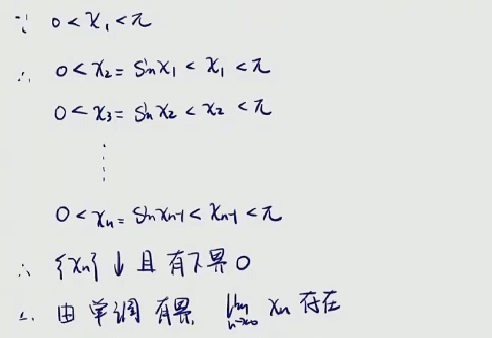 ∵ 0 < x₁ < π
∴ 0 < x₂ = sin x₁ < x₁ < π
0 < x₃ = sin x₂ < x₂ < π
⋮
0 < xₙ = sin xₙ₋₁ < xₙ₋₁ < π
∴ {xₙ} ↓ 且 有下界 0
∴ 由 单调 有界 lim n→∞ xₙ 存在